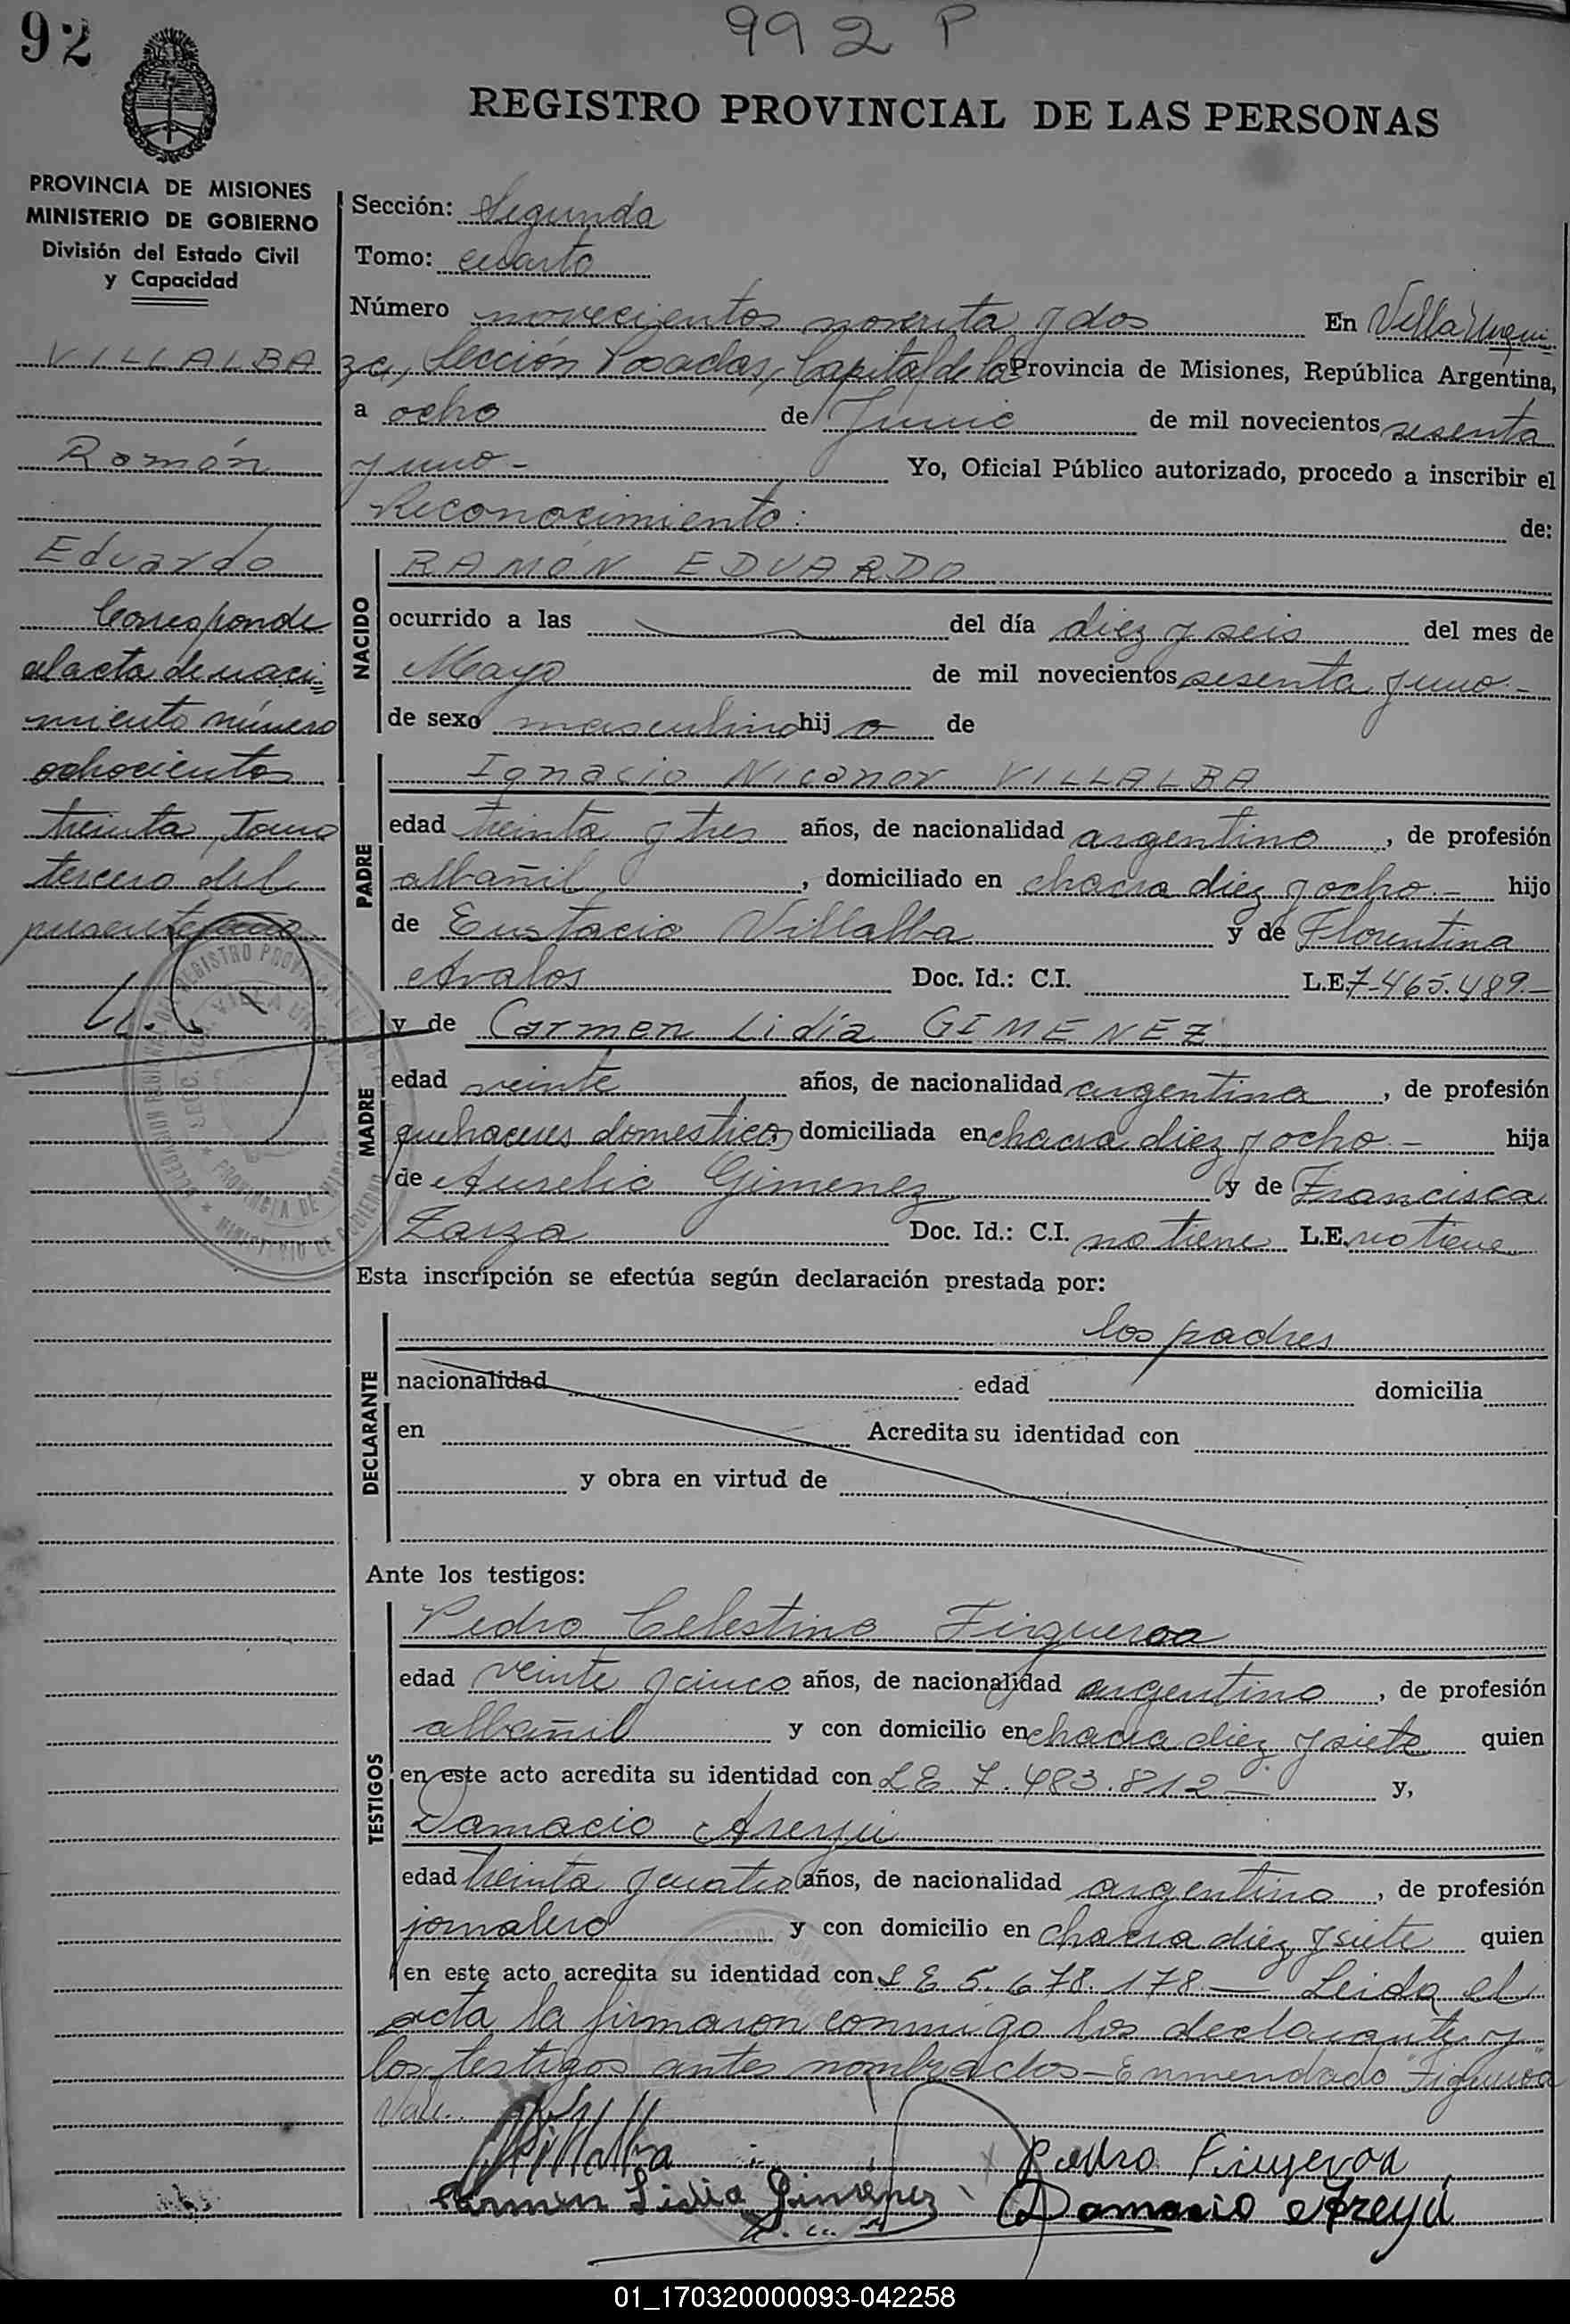 92
992 P
REGISTRO PROVINCIAL DE LAS PERSONAS
PROVINCIA DE MISIONES
MINISTERIO DE GOBIERNO
División del Estado Civil
y Capacidad
VILLALBA
Ramón
Eduardo
Corresponde
al acta de naci=
miento número
ochocientos
treinta, Tomo
tercero del
presente año
Sección: Segunda
Tomo: cuarto
Número novecientos noventa y dos En Villa Urqui
za, Sección Posadas, Capital de la Provincia de Misiones, República Argentina,
a ocho de Junio de mil novecientos sesenta
y uno - Yo, Oficial Público autorizado, procedo a inscribir el
Reconocimiento: de:
NACIDO
RAMÓN EDUARDO
ocurrido a las del día diez y seis del mes de
Mayo de mil novecientos sesenta y uno -
de sexo masculino hij o de
PADRE
Ignacio Nicanor VILLALBA
edad treinta y tres años, de nacionalidad argentino, de profesión
albañil, domiciliado en chacra diez y ocho.- hijo
de Eustacio Villalba y de Florentina
Avalos Doc. Id.: C.I. L.E. 7.465.489.-
MADRE
y de Carmen Lidía GIMENEZ
edad veinte años, de nacionalidad argentina, de profesión
quehaceres domesticos domiciliada en chacra diez y ocho.- hija
de Aurelio Gimenez y de Francisca
Zarza Doc. Id.: C.I. no tiene L.E. no tiene
Esta inscripción se efectúa según declaración prestada por:
DECLARANTE
los padres
nacionalidad edad domicilia
en Acredita su identidad con
y obra en virtud de
Ante los testigos:
TESTIGOS
Pedro Celestino Firgueroa
edad veinte y cinco años, de nacionalidad argentino, de profesión
albañil y con domicilio en chacra diez y siete quien
en este acto acredita su identidad con LE 7.483.812 - y,
Damacio Areyú
edad treinta y cuatro años, de nacionalidad argentino, de profesión
jornalero y con domicilio en chacra diez y siete quien
en este acto acredita su identidad con LE 5.678.178.- Leida el
acta la firmaron conmigo los declarantes y
los testigos antes nombrados - Enmendado "Figueroa"
Vale.
Villalba
Pedro Firgueroa
Carmen Lidia Gimenez
Damacio Areyú
01_170320000093-042258